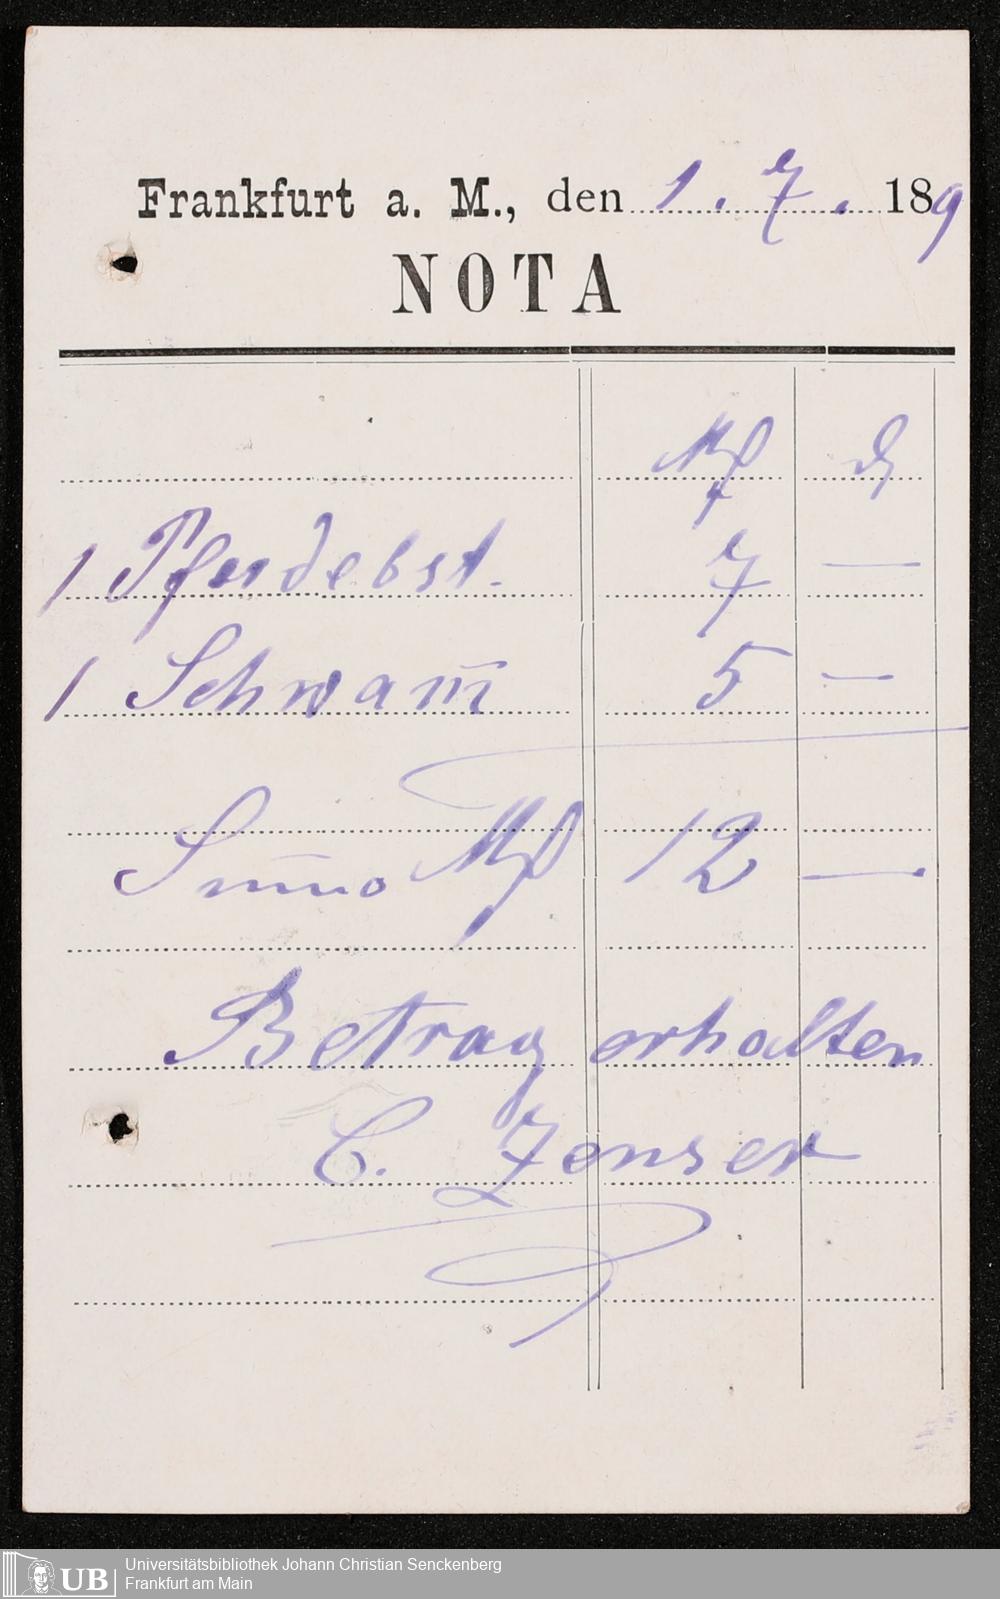 Frankfurt a. M., den 1. 7. 189
NOTA
Mk ₰
1 Pferdebst. 7 —
1 Schwam̄ 5 —
Mk 12 —
Betrag erhalten
C. Zenser
UB
Universitätsbibliothek Johann Christian Senckenberg
Frankfurt am Main